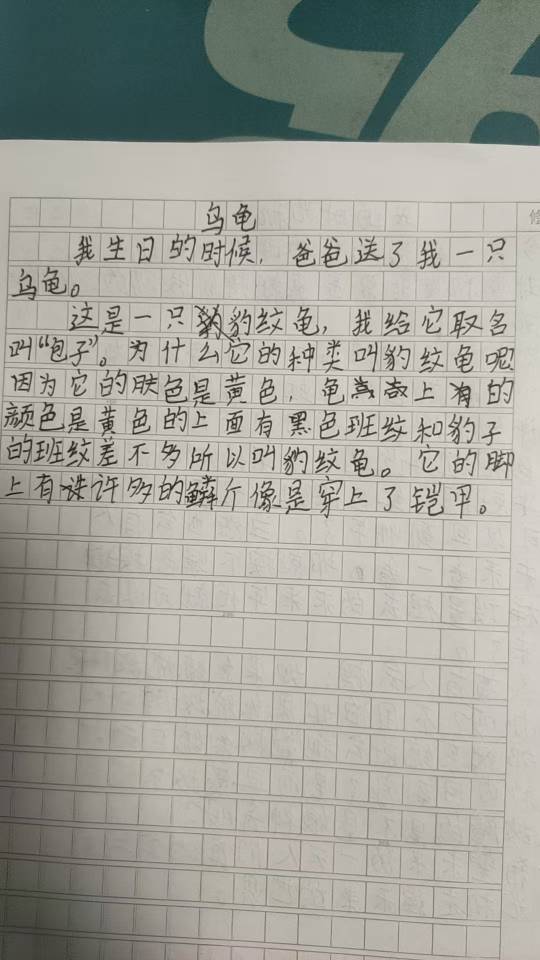 乌龟
我生日的时候，爸爸送了我一只
乌龟。
这是一只豹纹龟，我给它取名
叫“包子”。为什么它的种类叫豹纹龟呢
因为它的肤色是黄色，龟壳上的
颜色是黄色的上面有黑色班纹和豹子
的班纹差不多所以叫豹纹龟。它的脚
上有许多的鳞斤像是穿上了铠甲。